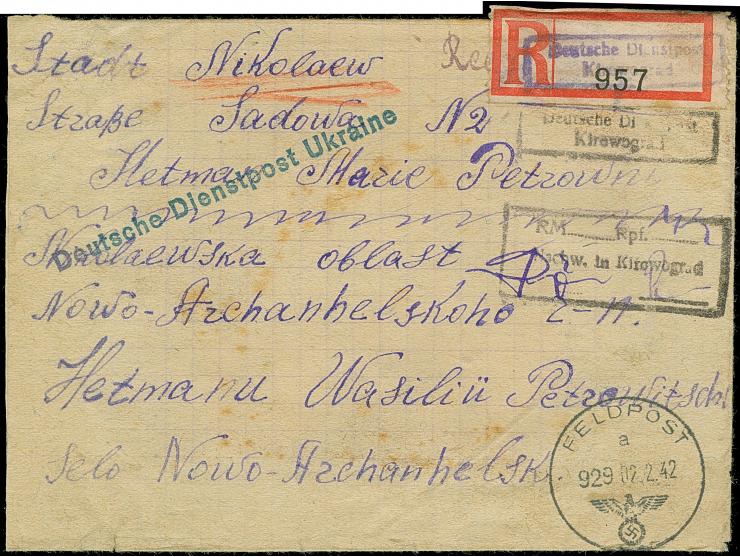 R Deutsche Dienstpost
Kirowograd
957
Stadt Nikolaew
Straße Sadowa N2
Deutsche Di
Kirowograd
Deutsche Dienstpost Ukraine
Hetman Marie Petrowni
RM. Rpf.
Nachw. in Kirowograd
Nikolaewska oblast
Nowo-Archanhelskoho
Hetmanu Wasiliü Petrowitsch
Selo Nowo-Archanhelsk.
FELDPOST
a
929 02.2.42